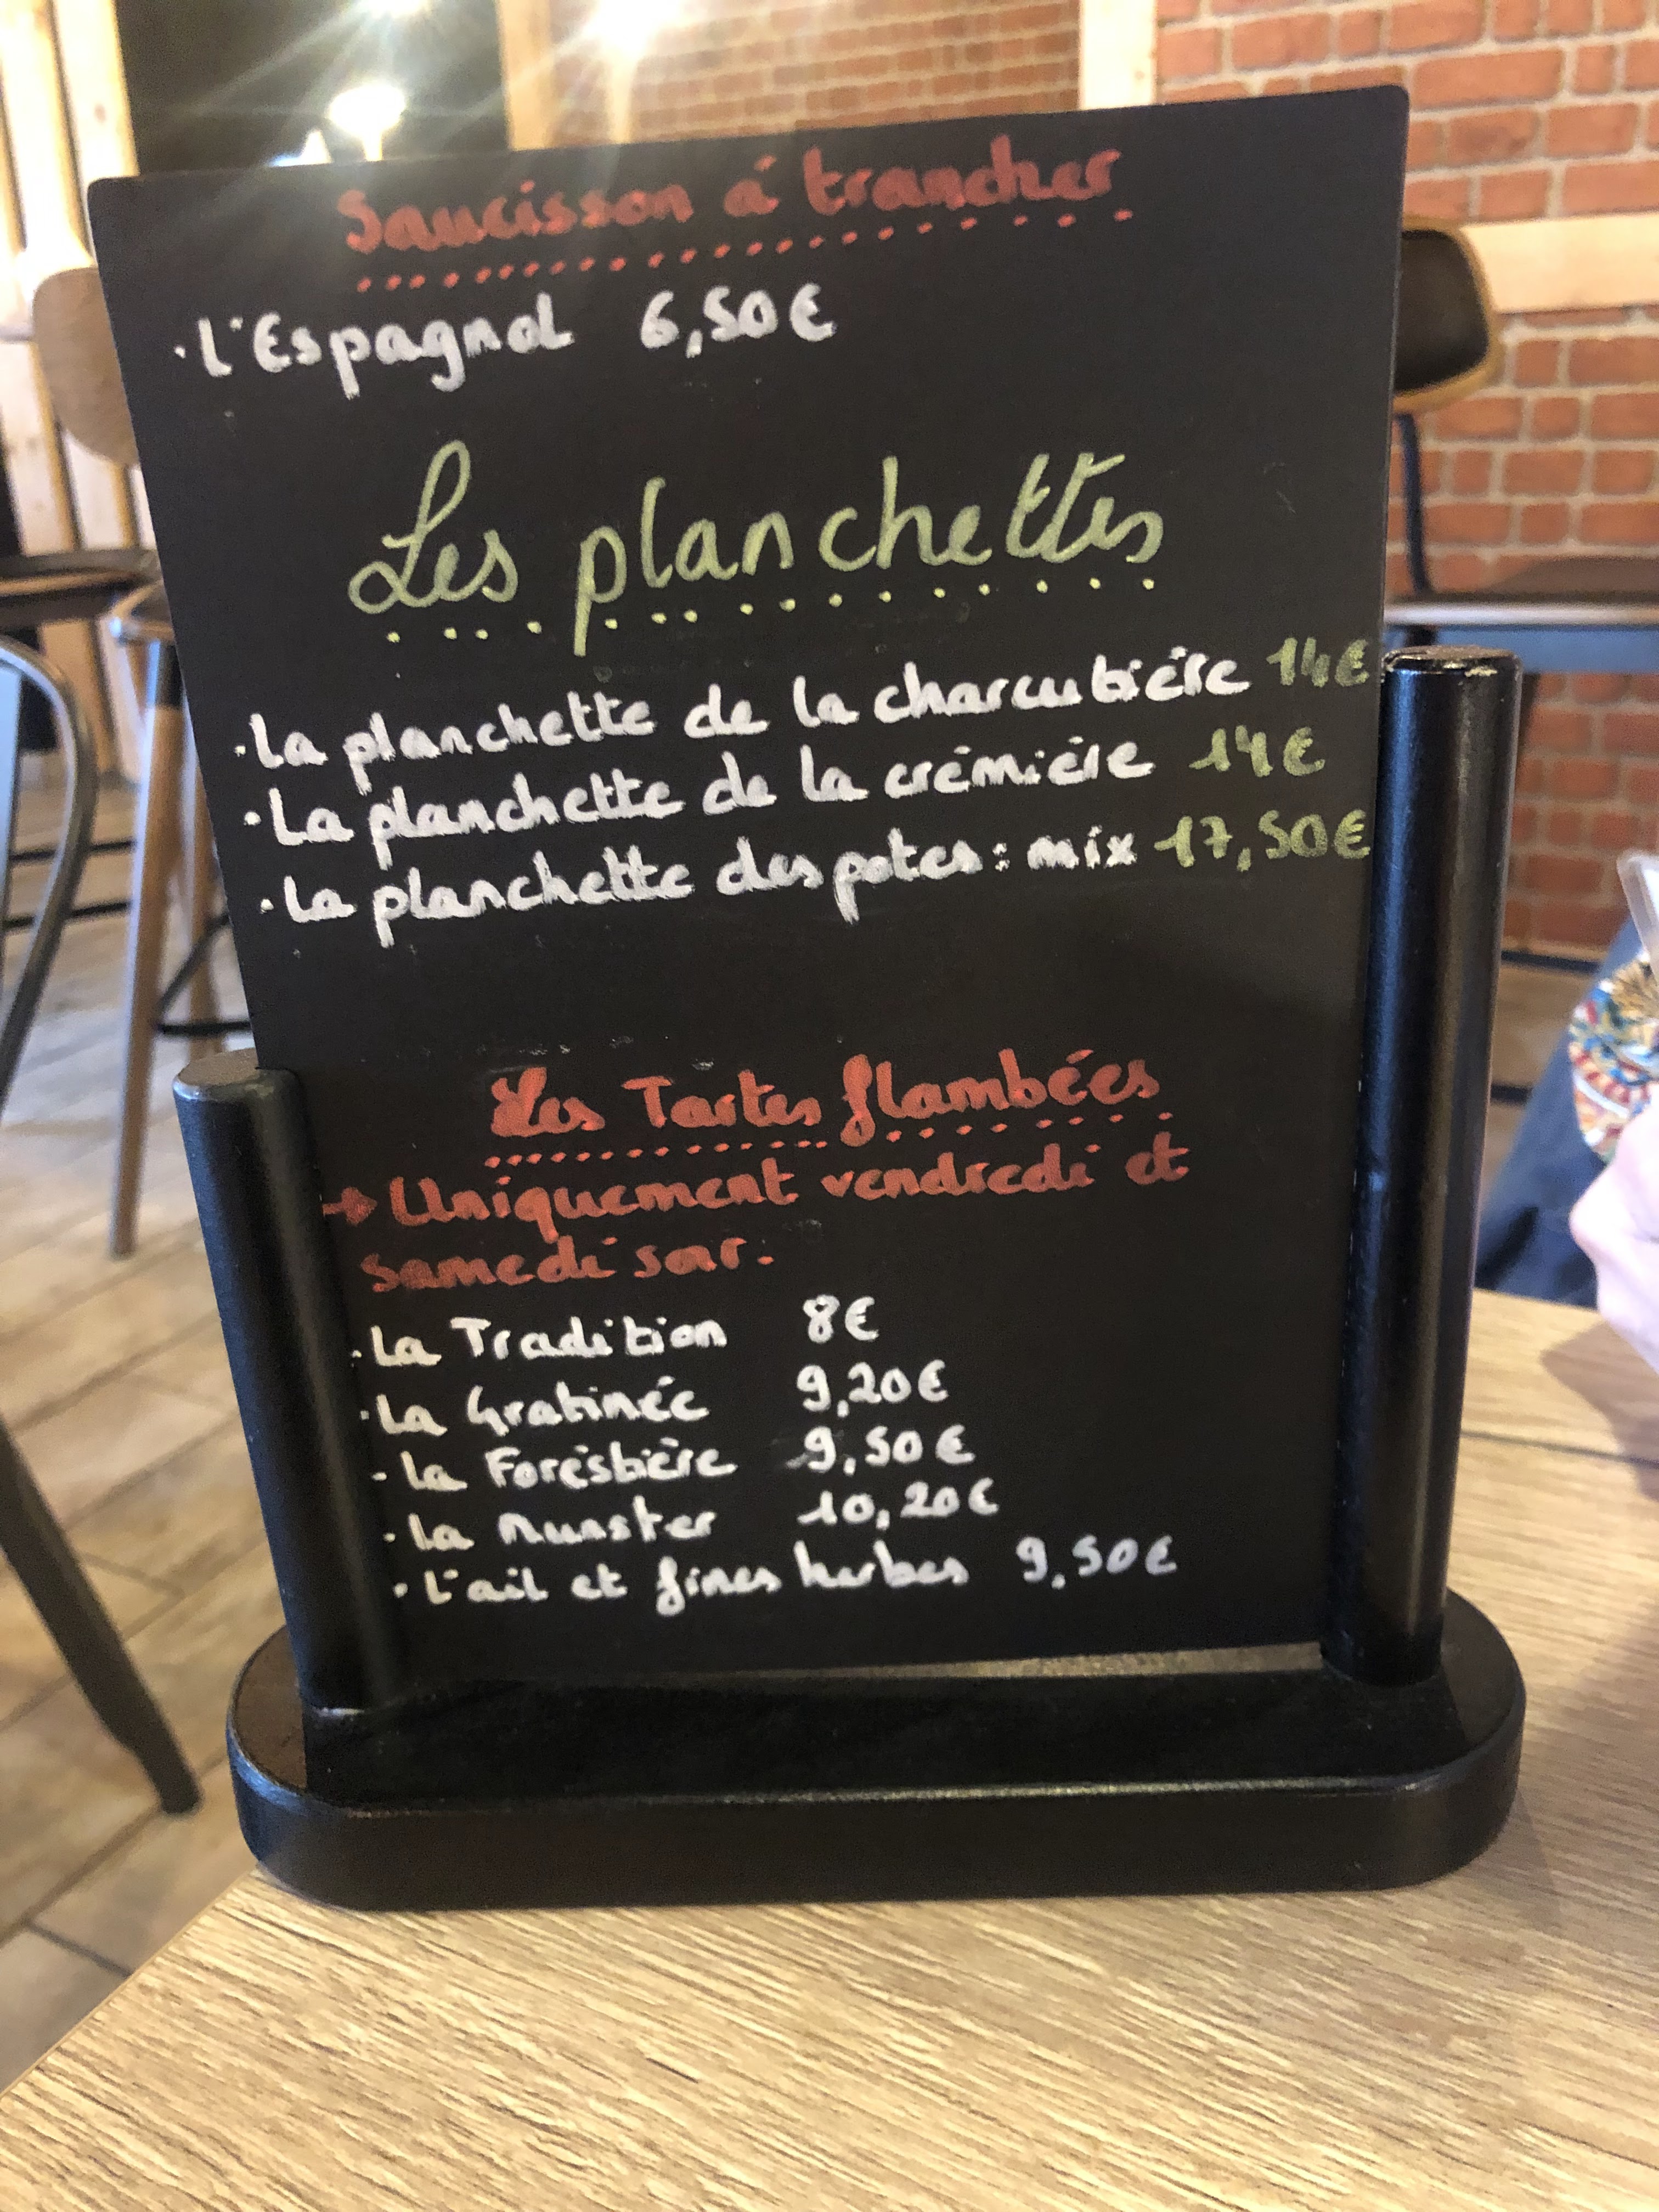 Saucisson à trancher
· l'Espagnol 6,50€
Les planchettes
· La planchette de la charcutière 14€
· La planchette de la crémière 14€
· La planchette des potes : mix 17,50€
Les Tartes flambées
→ Uniquement vendredi et
samedi soir :
· La Tradition 8€
· La Gratinée 9,20€
- La Forestière 9,50€
· La Munster 10,20€
· L'ail et fines herbes 9,50€